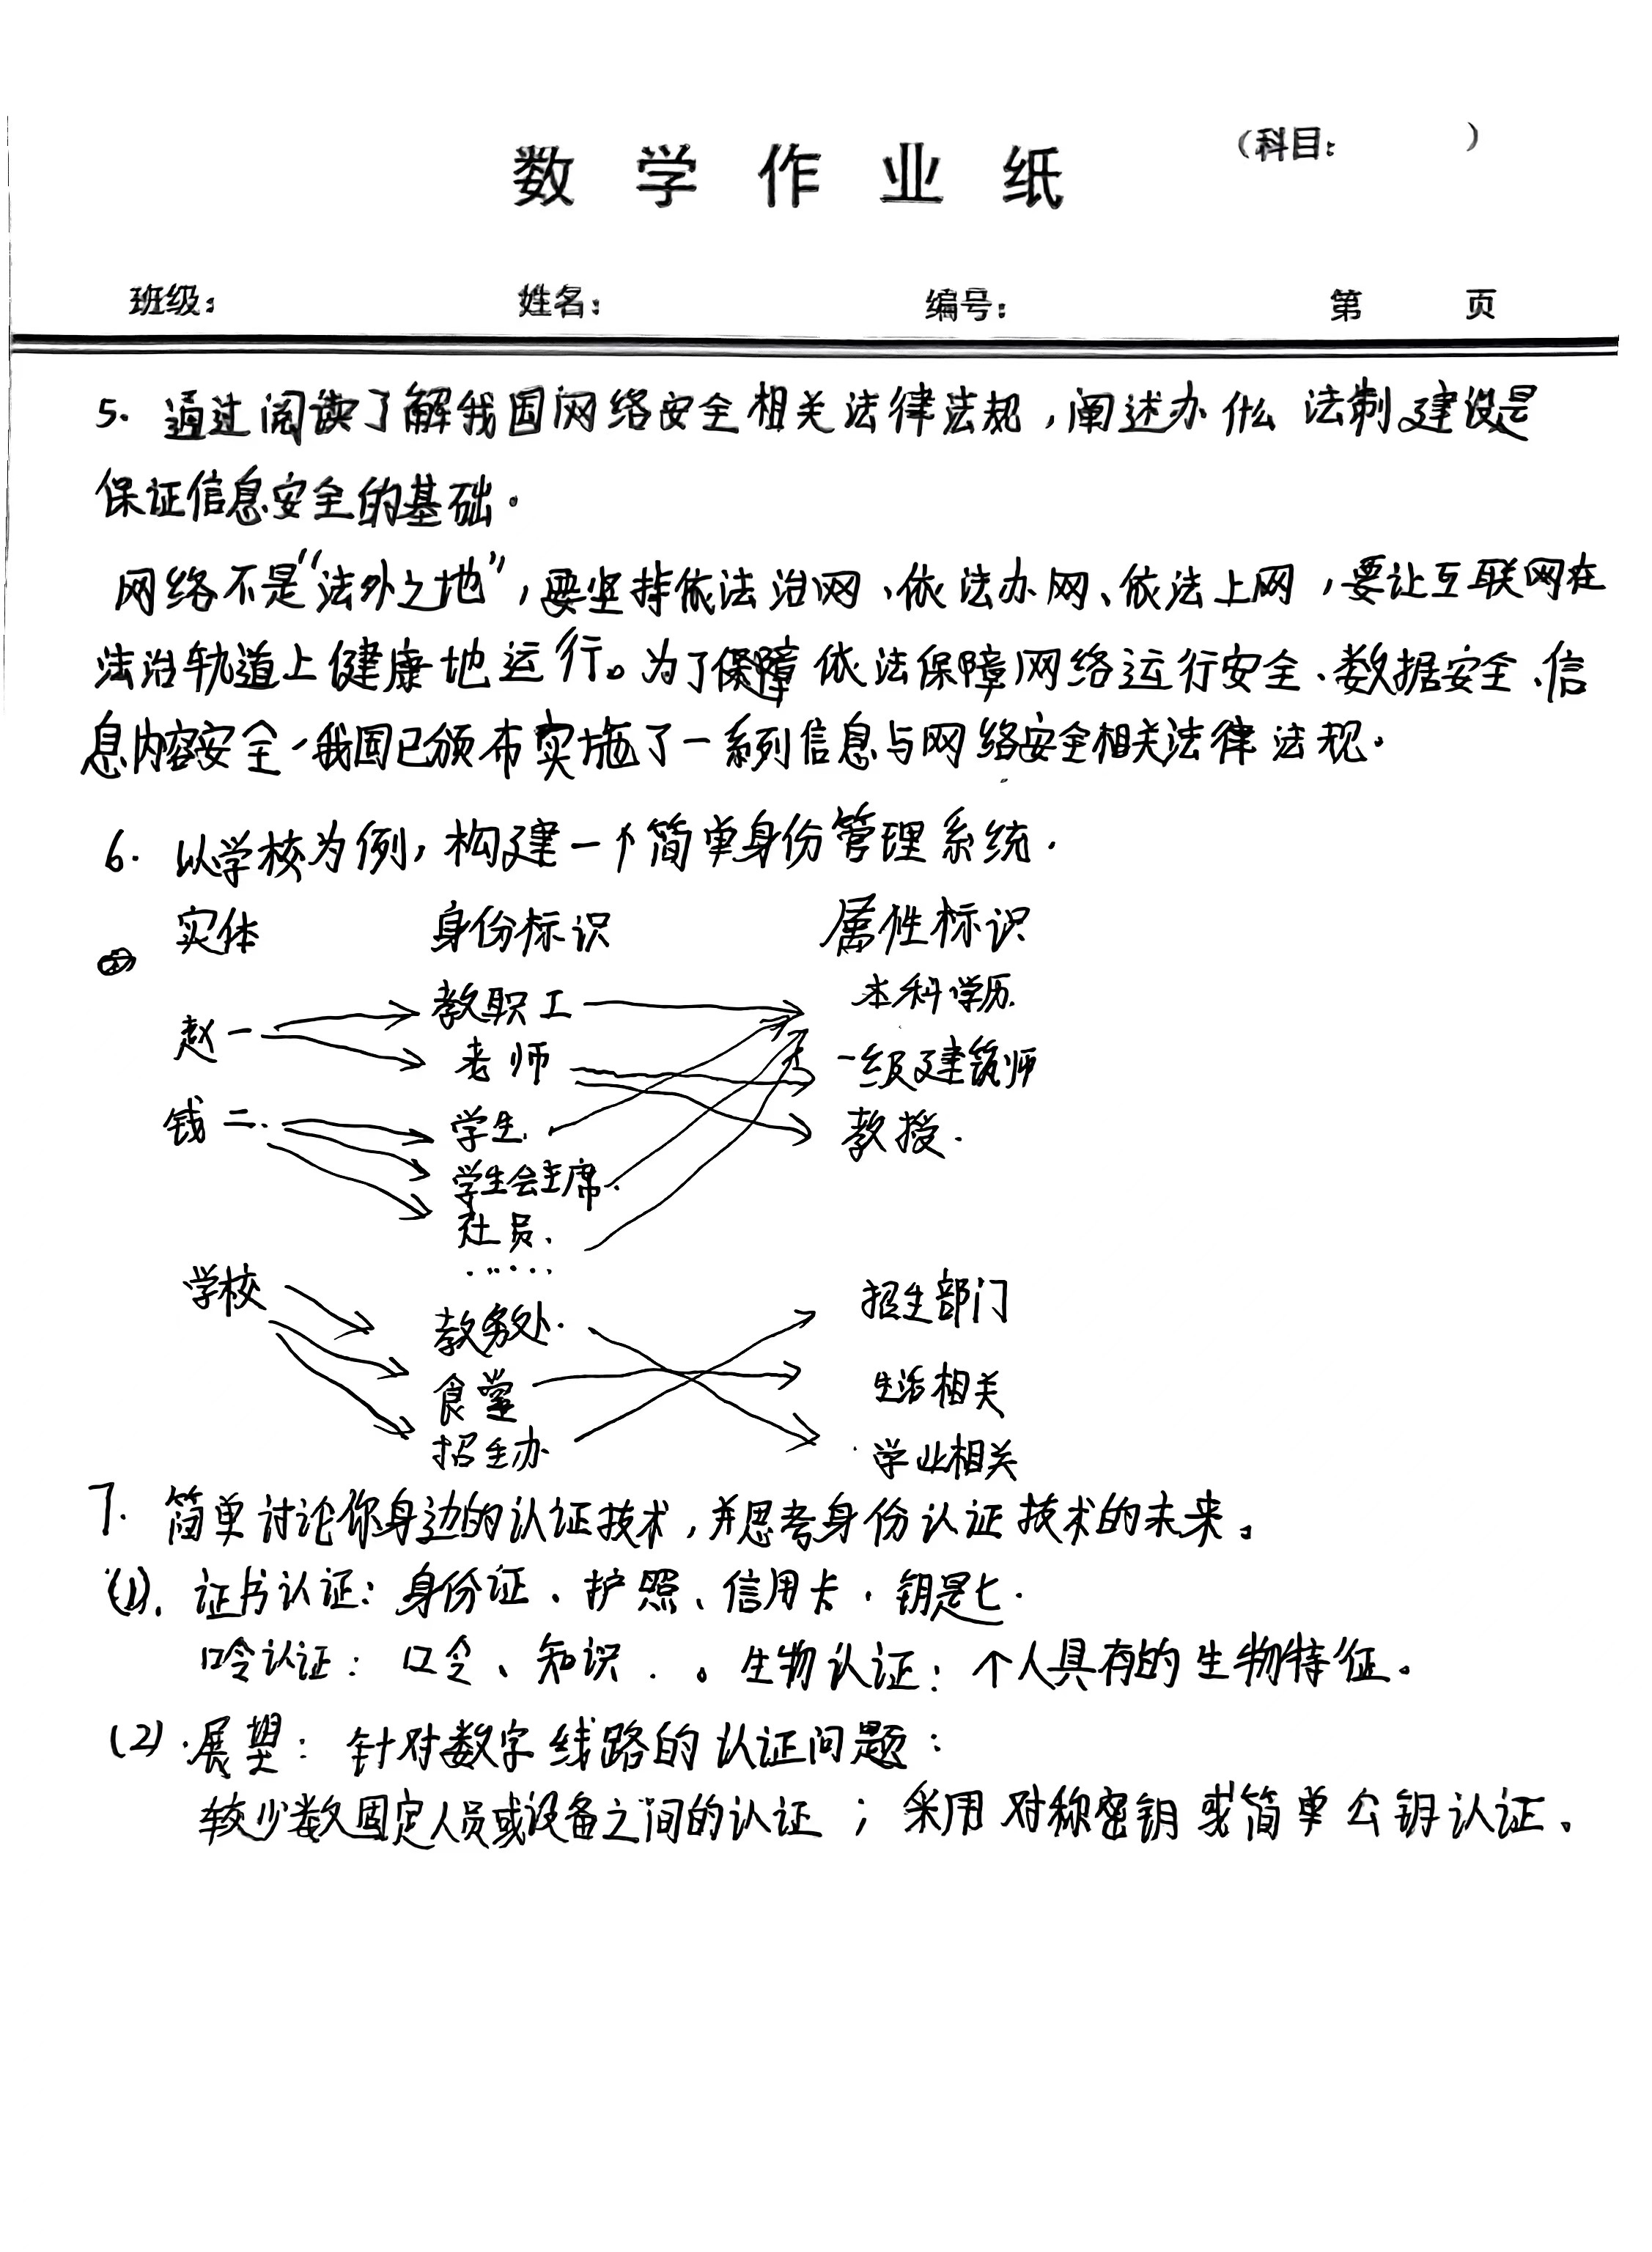 (科目: )
数 学 作 业 纸
班级: 姓名: 编号: 第 页
5. 通过阅读了解我国网络安全相关法律法规,阐述办什么 法制建设是
保证信息安全的基础。
网络不是“法外之地”,要坚持依法治网、依法办网、依法上网,要让互联网在
法治轨道上健康地运行。为了保障 依法保障网络运行安全、数据安全、信
息内容安全,我国已颁布实施了一系列信息与网络安全相关法律法规。
6. 以学校为例,构建一个简单身份管理系统.
实体 身份标识 属性标识
教职工 本科学历.
赵一 老师 一级建筑师
钱二. 学生. 教授.
学生会主席.
社员.
……
学校 招生部门
教务处.
食堂 生活相关
招生办 学业相关
7. 简单讨论你身边的认证技术,并思考身份认证技术的未来。
(1). 证书认证: 身份证、护照、信用卡、钥匙.
口令认证: 口令、知识 . 。生物认证: 个人具有的生物特征。
(2).展望: 针对数字线路的认证问题:
较少数固定人员或设备之间的认证 ; 采用对称密钥或简单公钥认证。